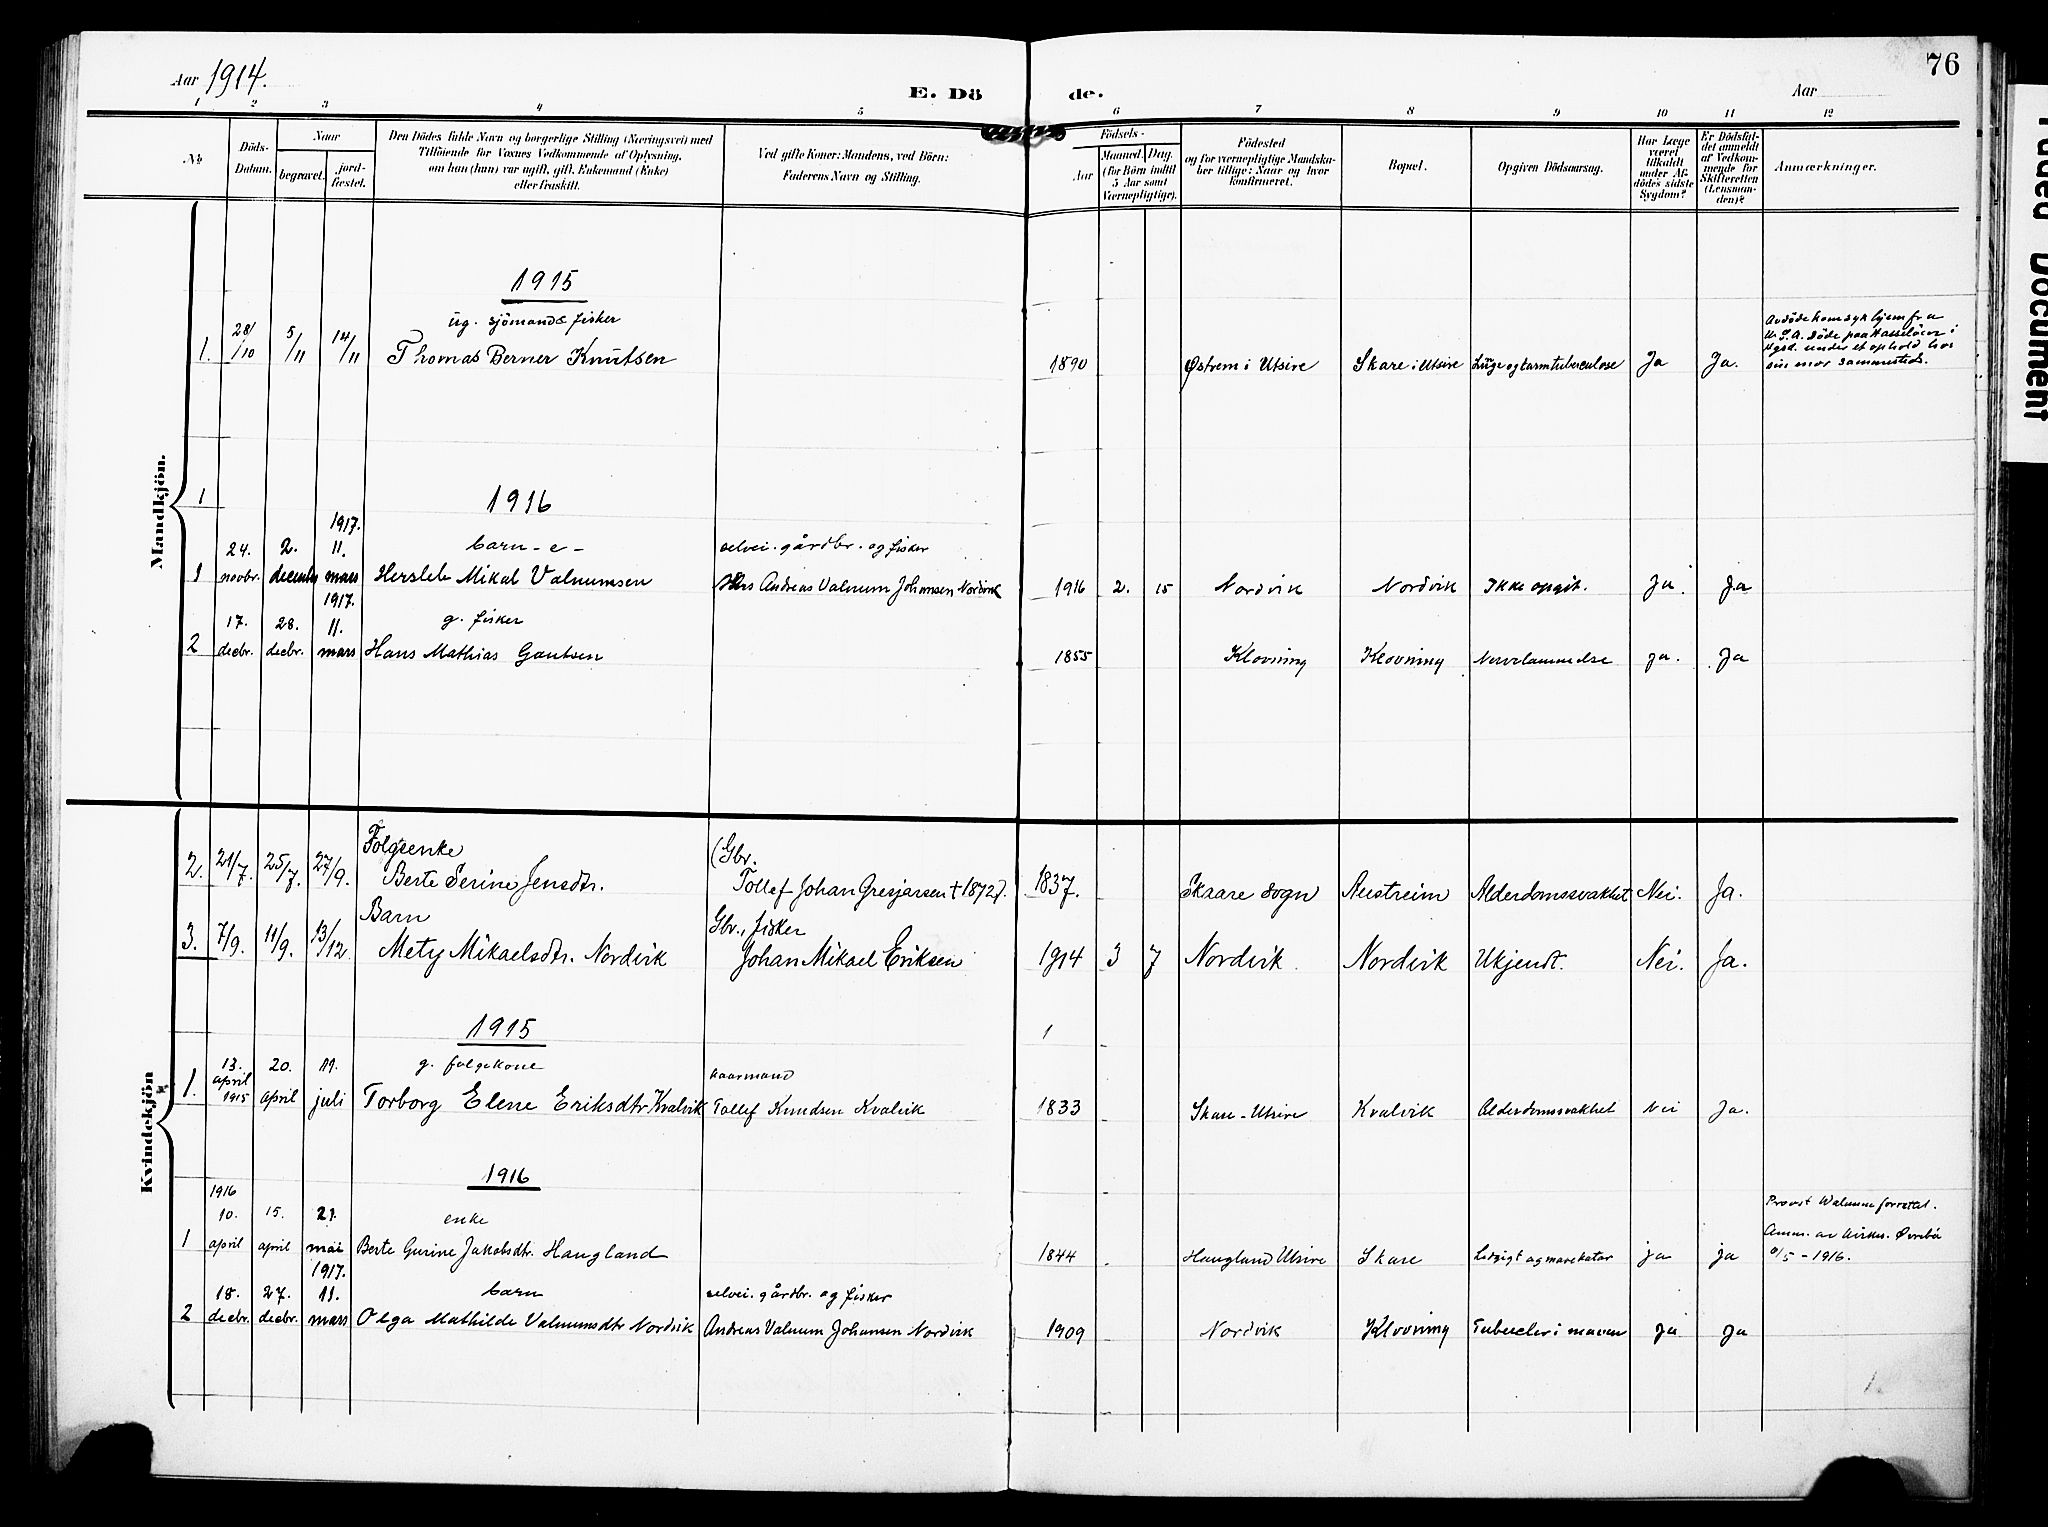 Aar 1914.
E. Dö
de.
Aar
76
1 2 3 4 5 6 7 8 9 10 11 12
№
Döds-Datum.
Naar
begravet.
jordfæstet.
Den Dödes fulde Navn og borgerlige Stilling (Næringsvei) med
Tilföiende for Voxnes Vedkommende af Oplysning,
om han (hun) var ugift, gift, Enkemand (Enke)
eller fraskilt.
Ved gifte Koner: Mandens, ved Börn:
Faderens Navn og Stilling.
Födsels-
Aar
Maaned. Dag.
(for Börn indtil
5 Aar samt
Værnepligtige).
Födested
og for værnepligtige Mandska-
ber tillige: Naar og hvor
konfirmeret.
Bopæl.
Opgiven Dödsaarsag.
Har Læge
været
tilkaldt
under Af-
dödes sidste
Sygdom?
Er Dödsfal-
det anmeldt
af Vedkom-
mende for
Skifteretten
(Lensman-
den)?
Anmærkninger.
Mandkjön.
1915
ug. sjömand & fisker
1. 28/10 5/11 14/11 Thomas Berner Knutsen 1890 Østrem i Utsire Skare i Utsire Lunge og tarmtuberculose Ja Ja.
Avdöde kom syk hjem fra
U.S.A. döde paa Hasselöen i
Hgsd. under et ophold hos
sin mor sammesteds.
1
1916
1917.
24. 2. 11. barn - e - selvei. gårdbr. og fisker
1 novbr. decembr mars Hersleb Mikal Valnumsen Andreas Valnum Johansen Nordvik 1916 2. 15 Nordvik Nordvik Ikke opgit. ja. ja
1917.
17. 28. 11. g. fisker
2 decbr. decbr. mars Hans Mathias Gautsen 1855 Klovning Klovning Nervelammelse ja. Ja
Kvindekjön
Folgeenke (Gbr.
2. 21/7. 25/7. 27/9. Berte Serine Jensdtr. Tollef Johan Gresjarsen † 1872). 1837. Skaare sogn Austreim Alderdomssvakhet Nei. Ja.
Barn Gbr., fisker
3. 7/9. 11/9. 13/12 Mety Mikaelsdtr. Nordvik Johan Mikael Eriksen 1914 3 7 Nordvik. Nordvik Ukjendt. Nei. Ja.
1915
1
13. 20. 11. g. folgekone kaarmand
1. april 1915 april juli Torborg Elene Eriksdtr Kvalvik Tollef Knudsen Kvalvik 1833 Skare - Utsire Kvalvik Alderdomssvakhet Nei Ja.
1916
1916
10. 15. 21. enke Provst Walnum forrettet.
1 april april mai Berte Gurine Jakobsdtr. Haugland 1844 Haugland Utsire Skare og mavekatar ja ja
Anm. av Øvrebö
/5 - 1916.
1917.
18. 27. 11. barn selvei. gårdbr. og fisker
2 decbr. decbr. mars Olga Mathilde Valnumsdtr Nordvik Andreas Valnum Johansen Nordvik 1909 Nordvik Klovning Tubercler i maven ja Ja
1.
Document